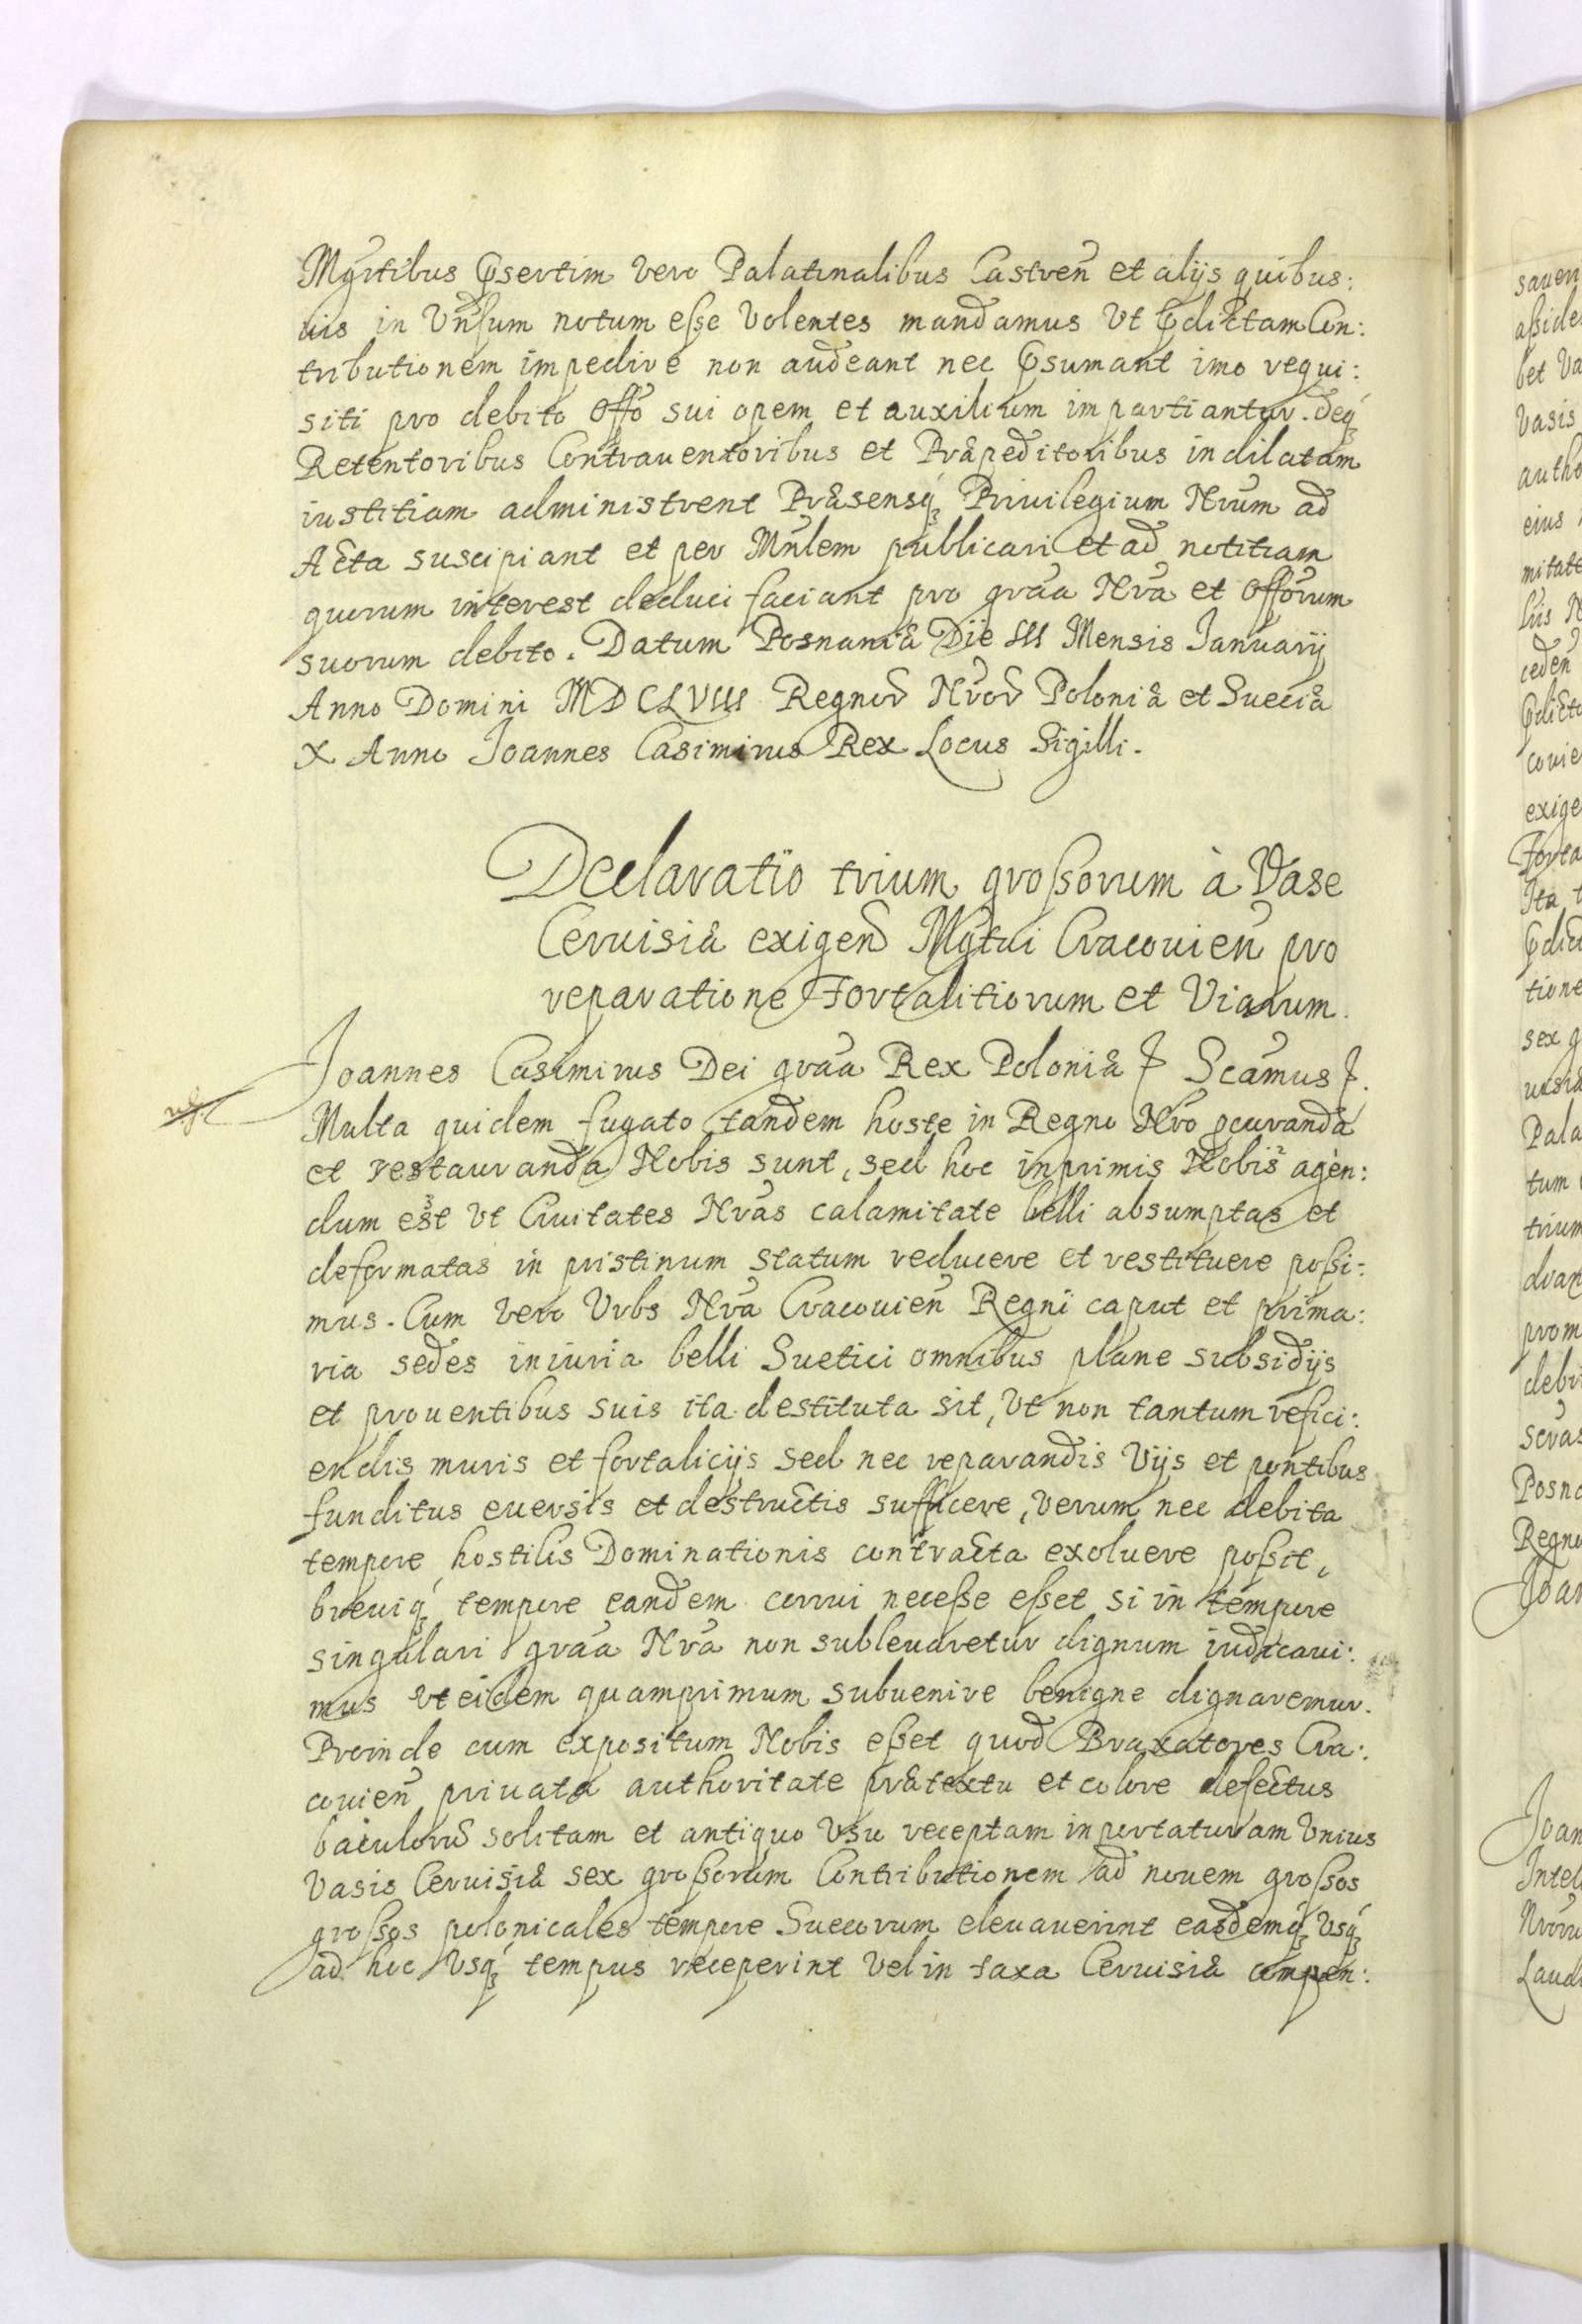 Mgrtibus Psertim vero Palatinalibus Castren̄ et alijs quibus:
uis in Vn̄sum notum eſse Volentes mandamus Vt Pdictam Con:
tributionem impedire non audeant nec Psumant imo requi:
siti pro debito Offo sui opem et auxilium impartiantur. Deq́ꝫ
Retentoribus Contrauentoribus et Præpeditoribus indilatam
iustitiam administrent Præsensq́ꝫ Priuilegium Nrum ad
Acta suscipiant et per Mnlem publicari et ad notitiam
quorum interest deduci faciant pro graa Nra et Offorum
suorum debito. Datum Posnaniæ Die III Mensis Januarij
Anno Domini MDCLVIII Regnor Nror Poloniæ et Sueciæ
X Anno Joannes Casimirus Rex Locus Sigilli.
Declaratio trium groſsorum à Vase
Ceruisiæ exigend Mgtui Cracouien̄ pro
reparatione Fortalitiorum et Viarum.
Joannes Casimirus Dei graa Rex Poloniæ ꝭ Scamus ꝭ.
Multa quidem fugato tandem hoste in Regno Nro pcuranda
et restauranda Nobis sunt, sed hoc inprimis Nobis agen:
dum est Vt Ciuitates Nras calamitate belli absumptas et
deformatas in pristinum statum reducere et restituere poſsi:
mus. Cum vero Vrbs Nra Cracouien̄ Regni caput et prima:
ria sedes iniuria belli Suetici omnibus plane subsidijs
et prouentibus suis ita destituta sit, Vt non tantum refici:
endis muris et fortalicijs sed nec reparandis Vijs et pontibus
funditus euersis et destructis sufficere, verum nec debita
tempore hostilis Dominationis contracta exoluere poſsit,
breuiq́ꝫ tempore eandem corrui neceſse eſset si in tempore
singulari graa Nra non subleuaretur dignum iudicaui:
mus vt eidem quamprimum subuenire benigne dignaremur.
Proinde cum expositum Nobis eſset quod Braxatores Cra:
couien̄ priuata authoritate prætextu et colore defectus
baiulorū solitam et antiquo Vsu receptam in portaturam Vnius
Vasis Ceruisiæ sex groſsorum Contributionem ad nouem groſsos
groſsos polonicales tempore Suecorum eleuauerint easdemq́ꝫ Vsq́ꝫ
ad hoc Vsq́ꝫ tempus receperint Vel in taxa Ceruisiæ compen: